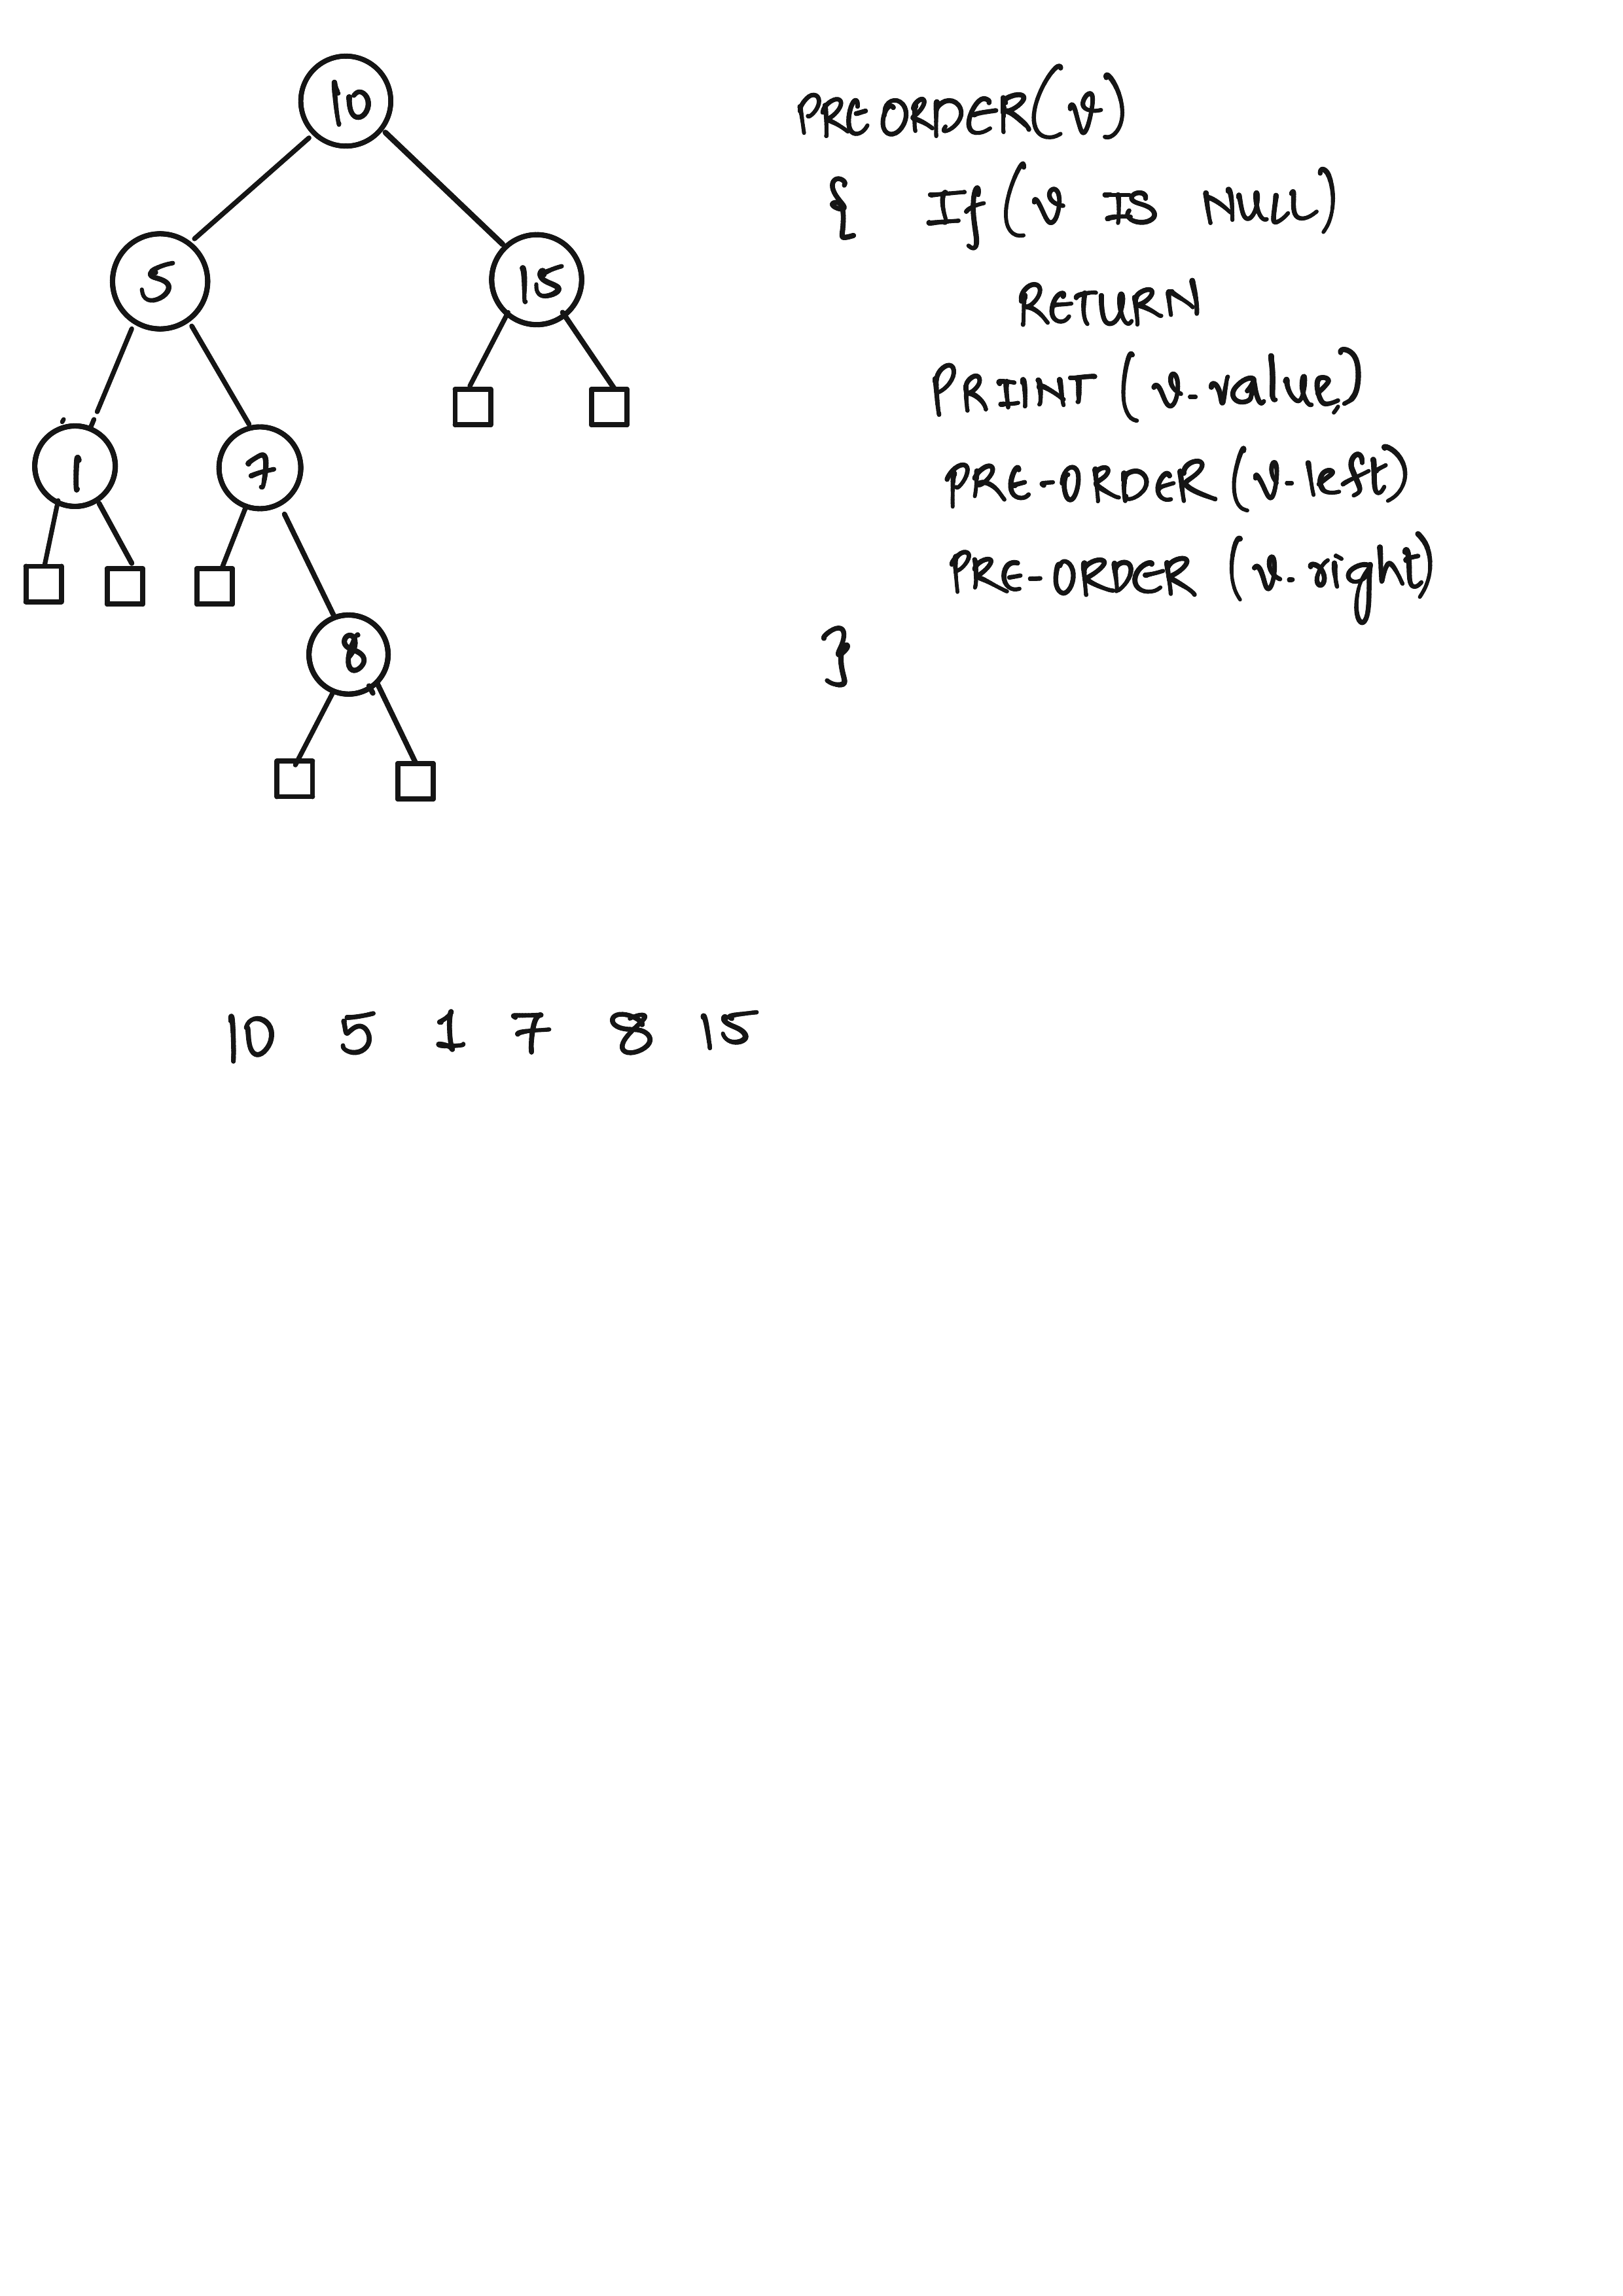 10
5 15
1 7
8
PREORDER(v)
{ If (v IS NULL)
RETURN
PRIINT (v-value)
PRE-ORDER (v-left)
PRE-ORDER (v-right)
}
10 5 1 7 8 15